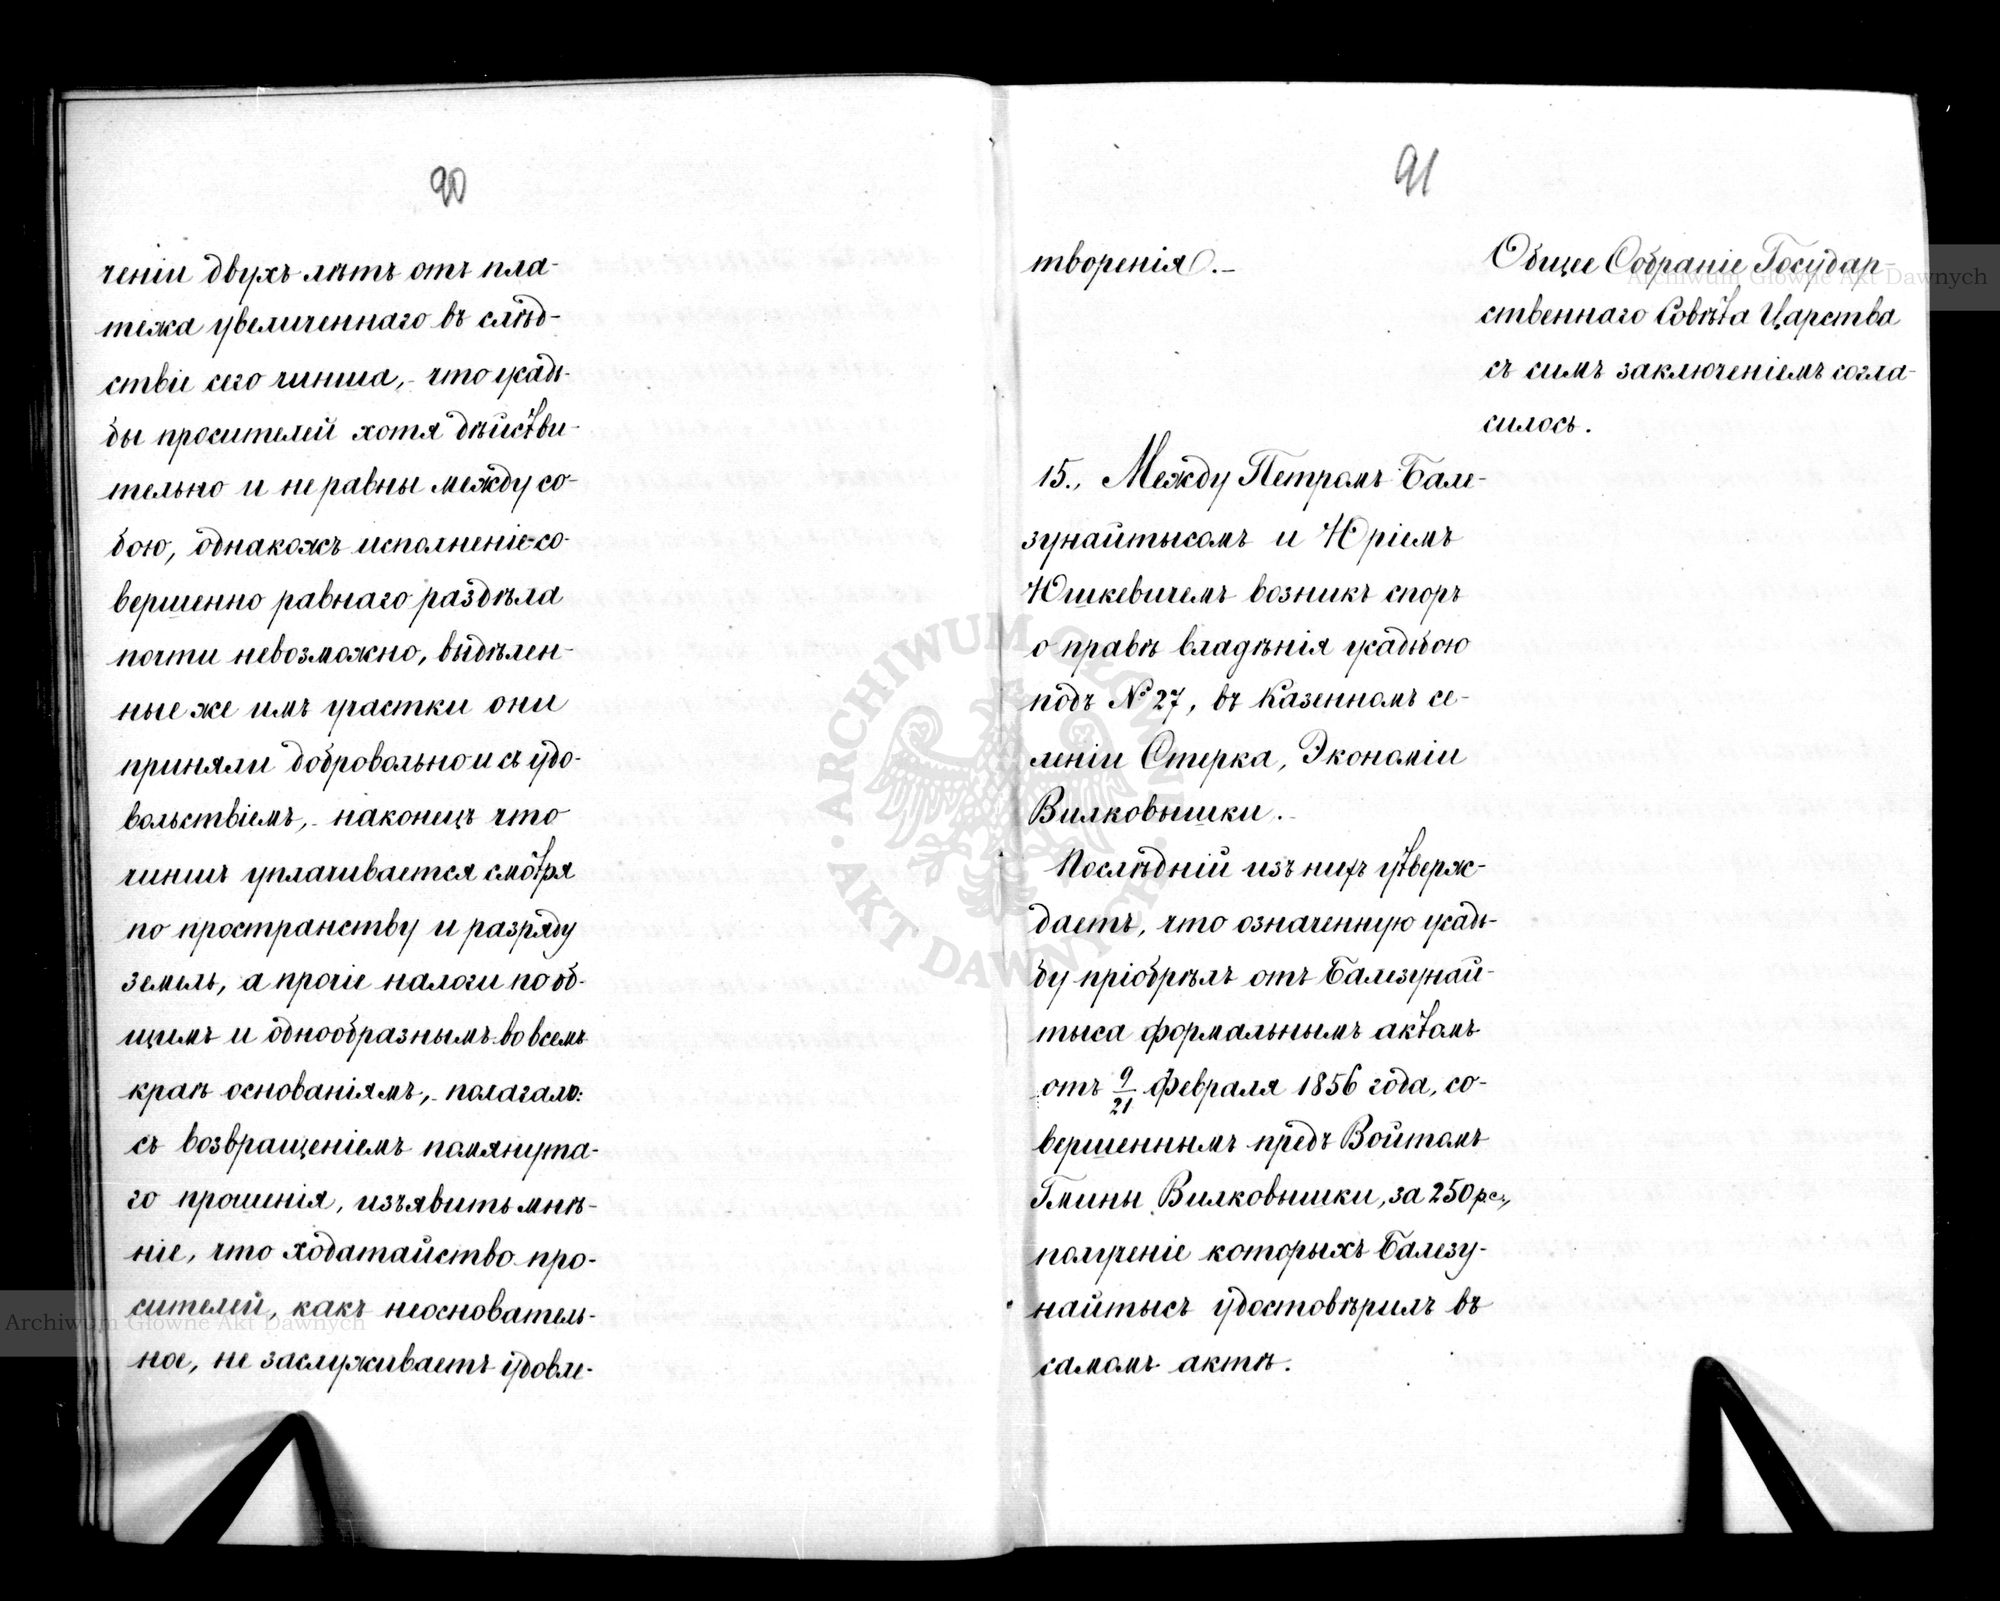 90
ченіи двухъ лѣтъ отъ пла-
тежа увеличеннаго въ слѣд-
ствіе сего чинша, что усадь-
бы просителей хотя дѣйстви-
тельно и не равны между со-
бою, однакожъ исполненіе со-
вершенно равнаго раздѣла
почти невозможно, выдѣлен-
ные же имъ участки они
приняли добровольно и съ удо-
вольствіемъ, наконецъ что
чиншъ уплачивается смотря
по пространству и разряду
земель, а прочіе налоги по об-
щимъ и однообразнымъ во всемъ
краѣ основаніямъ, полагало:
съ возвращеніемъ помянута-
го прошенія, изъявить мнѣ-
ніе, что ходатайство про-
сителей, какъ неоснователь-
ное, не заслуживаетъ удовле-
91
творенія.
Общее Собраніе Государ-
ственнаго Совѣта Царства
съ симъ заключеніемъ согла-
силось.
15., Между Петромъ Бале-
зунайтысомъ и Юріемъ
Юшкевичемъ возникъ споръ
о правѣ владѣнія усадьбою
подъ № 27, въ Казенномъ се-
леніи Стерка, Экономіи
Вилковышки.
Послѣдній изъ нихъ утверж-
даетъ, что означенную усадь-
бу пріобрѣлъ отъ Балезунай-
тыса формальнымъ актомъ
отъ 9/21 Февраля 1856 года, со-
вершеннымъ предъ Войтомъ
Гмины Вилковышки, за 250 р.с.,
полученіе которыхъ Балезу-
найтысъ удостовѣрилъ въ
самомъ актѣ.
ARCHIWUM GŁÓWNE
AKT DAWNYCH
Archiwum Główne Akt Dawnych
Archiwum Główne Akt Dawnych